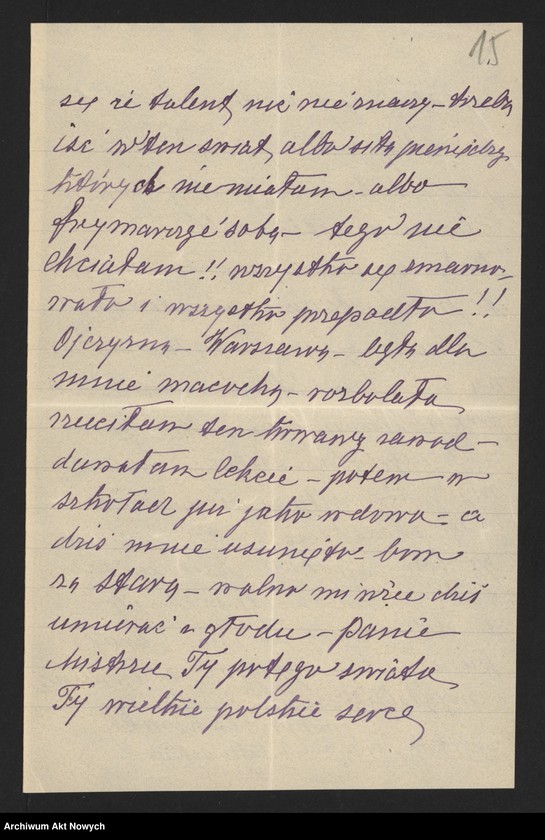 15
się że talent, nic nie znaczy – trzeba
iść w ten świat, albo siłą pieniędzy
których nie miałam – albo
frymarczyć sobą – tego nie
chciałam!! wszystko się zmarno-
wało i wszystko przepadło!!
Ojczyzna – Warszawa – była dla
mnie macochą – rozbolała
rzuciłam ten krwawy zawód –
dawałam lekcie – potem w
szkołach już jako wdowa – a
dziś mnie usunięto – bom
za stara – wolno mi więc dziś
umierać z głodu – Panie
Mistrzu Ty potęgo świata
Ty wielkie polskie serce
Archiwum Akt Nowych